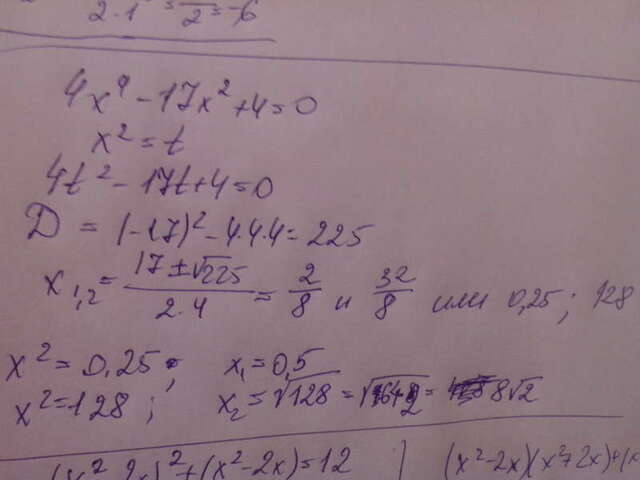 2·1 = 2 = -6
4x⁴ - 17x² + 4 = 0
x² = t
4t² - 17t + 4 = 0
D = (-17)² - 4·4·4 = 225
x₁,₂ = (17 ± √225)/(2·4) = 2/8 и 32/8 или 0,25; 128
x² = 0,25; x₁ = 0,5
x² = 128; x₂ = √128 = √64·2 = 8√2
+ (x² - 2x) = 12 | (x² - 2x)(x² + 2x)